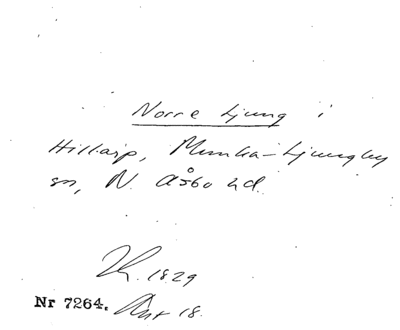 Norre Ljung i
Hillarp, Munka-Ljungby
sn, N. Åsbo hd.
1829
Nr 7264. Akt 18.